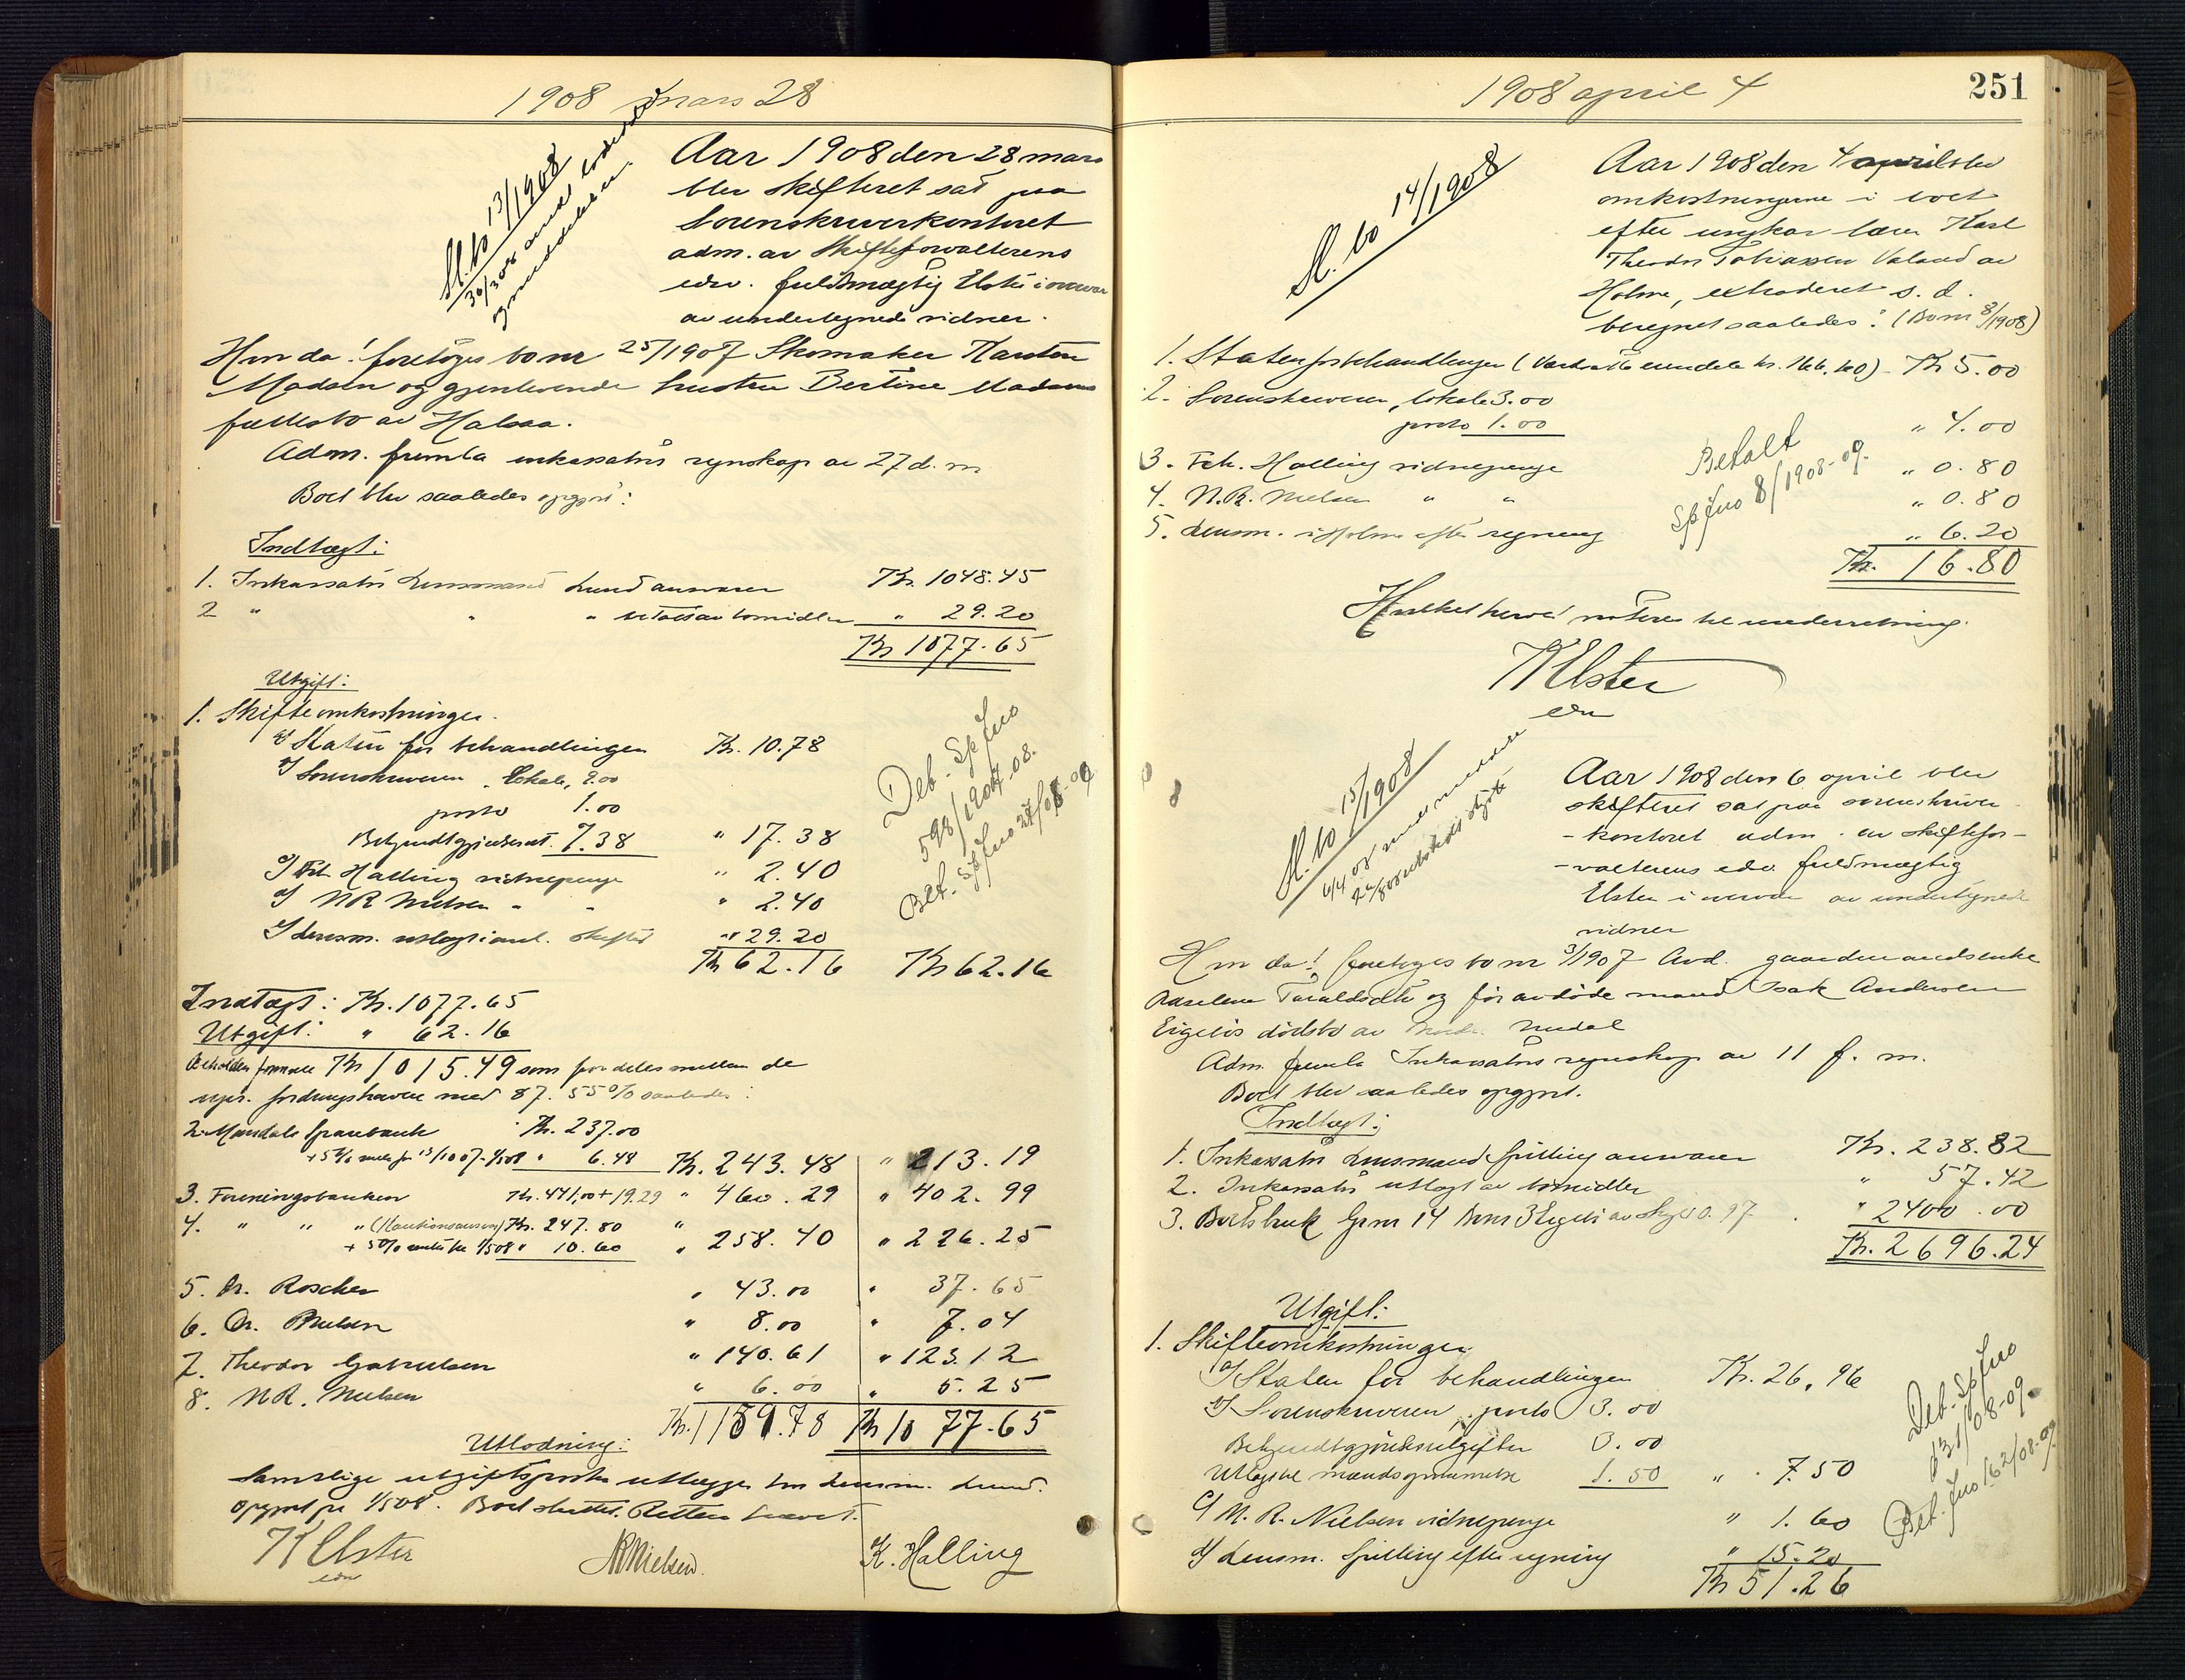 1908 mars 28
Sl. bo 13/1908
Aar 1908 den 28 mars
blev skifteret sat paa
Sorenskriverkontoret
adm. av Skifteforvalterens
edsv. fuldmægtig Elster i overvær
av undertegnede vidner.
Hvorda! foretoges bo nr 25/1907 Skomaker Karsten
Madsen og gjenlevende hustru Bertine Madsens
fællesbo av Halsaa.
Adm. fremla inkassators regnskap av 27 d. m
Boet blev saaledes opgjort:
Indtægt:
1. Inkassator Lensmand Lund ansvarer Kr. 1048.45
2 " " " utlagt av bomidler " 29.20
Kr 1077.65
Utgift:
1. Skifteomkostninger.
a/ Staten for behandlingen Kr. 10.78
b/ Sorenskriveren. Lokale, 9.00
porto 1.00
Bekjendtgjørelser 7.38 " 17.38
c/ Fch. Halling vidnepenge " 2.40
d/ NR Nielsen " " " 2.40
e/ Lensm. utlagt i anl. skiftet " 29.20
Kr 62.16 Kr 62.16
Deb. Sp Jno
598/1907-08.
Bet. Sp Jno 27/08-09
Indtægt: Kr. 1077.65
Utgift: " 62.16
Beholden formue Kr 1015.49 som fordeles mellem de
upr. fordringshavere med 87.55% saaledes:
2. Mandals Sparebank Kr. 237.00
+ 5% rente fra 13/10 07-1/5 08 " 6.48 Kr. 243.48 " 213.19
3. Foreningsbanken Kr. 441,00 + 19.29 " 460.29 " 402.99
4. " " " (Kautionsansvar) Kr. 247.80 "
+ 5% rente til 1/5 08 " 10.60 " 258.40 " 226.25
5. Dr. Roscher " 43.00 " 37.65
6. Chr. Nielsen " 8.00 " 7.04
7. Theodor Gabrielsen " 140.61 " 123.12
8. NR. Nielsen " 6.00 " 5.25
Kr. 1159.78 Kr 1077.65
Utlodning:
Samtlige utgiftsposter utlægges hos Lensm. Lund.
Opgjort pr 1/5 08. Boet sluttet. Retten hævet.
K Elster
edsv
NR Nielsen.
K. Halling
1908 april 4
251
Sl. bo 14/1908
Aar 1908 den 4 april blev
omkostningerne i boet
efter ungkar lærer Karl
Theodor Tobiassen Valand av
Holme, extraderet s. d.
beregnet saaledes: (Bo nr 8/1908)
1. Staten for behandlingen (Værdi av boets eiendele kr. 166.60) Kr 5.00
2. Sorenskriveren, lokale 3.00
porto 1.00 " 4.00
3. Fch. Halling vidnepenge " 0.80
4. N.R. Nielsen " " " 0.80
5. Lensm. i Holme efter regning " 6.20
Kr. 16.80
Betalt
Sp Jno 8/1908-09.
Hvilket herved noteres til underretning.
K Elster
edsv
Sl. bo 15/1908
Aar 1908 den 6 april blev
skifteret sat paa sorenskriver
-kontoret adm. av skiftefor-
-valterens edsv. fuldmægtig
Elster i overvær av undertegnede
vidner
Hvorda! foretoges bo nr 3/1907 Avd. gaardmandsenke
Taraldsdtr og før avdøde mand Isak Andersen
Eigelis dødsbo av Undal
Adm fremla Inkassators regnskap av 11 f. m.
Boet blev saaledes opgjort.
Indtægt:
1. Inkassator Lensmand Spilling ansvarer Kr. 238.82
2. Inkassators utlagt av bomidler " 57.42
3. Boets bruk Gr nr 14 Br nr 3 Eigeli av skyld 0.97 " 2400.00
Kr. 2696.24
Utgift:
1. Skifteomkostninger
a/ Staten for behandlingen Kr. 26,96
b/ Sorenskriveren, porto 3.00
Bekjendtgjørelsesutgifter 3.00
Utlagt til mandsopnævnelse 1.50 " 7.50
c/ N. R. Nielsen vidnepenge " 1.60
d/ Lensm. Spilling efter regning " 15.20
Kr 51.26
Deb. Sp Jno
131/08-09.
Bet. Jno 162/08-09